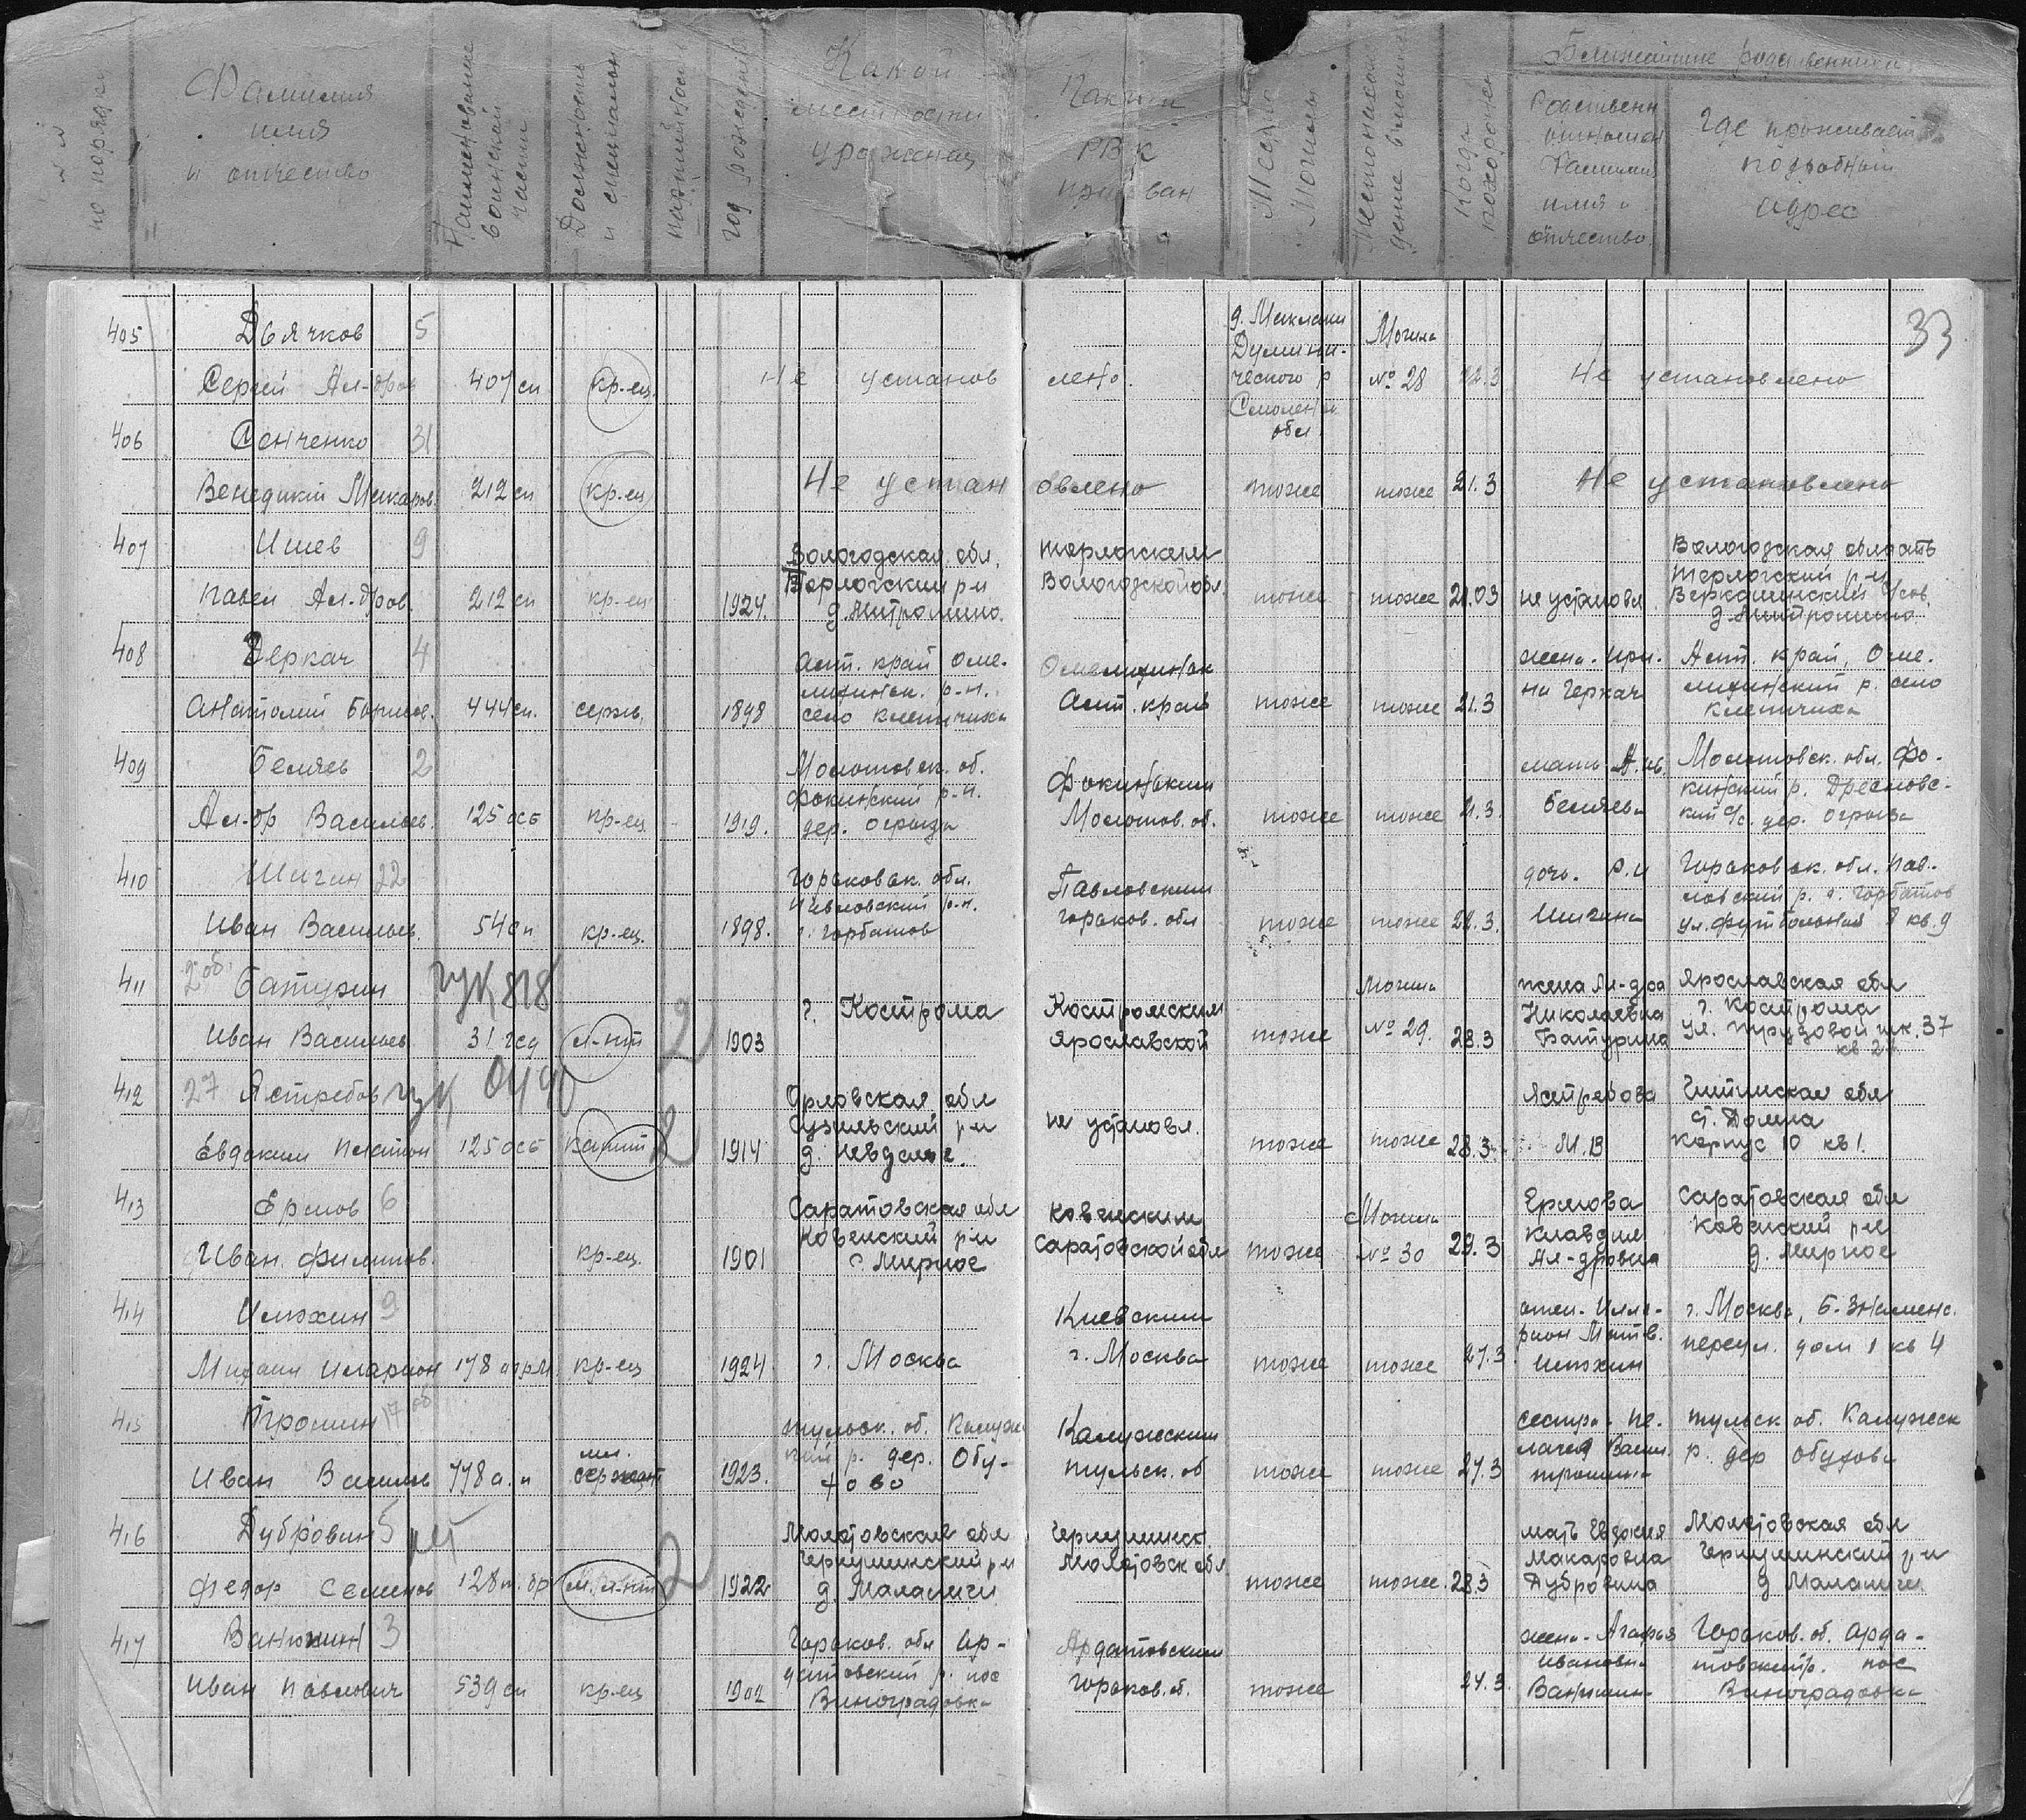 №№ по порядку
Фамилия имя и отчество
Наименование воинской части
Должность и специальн
партийность
год рождения
Какой местности урожениц
Каким РВК призван
Место могилы
Местонахож дение в могиле
Когда похоронен
Ближайшие родственники
Родственн отношен Фамилия имя и отчество
Где проживает подробный адрес
33
405 Дьячков 5
Сергей Ал-дров 407 сп кр-ец Не установ лено.
д. Маклаки Думини- ческого р Смоленск обл
Могила № 28 22.3 Не установлено
406 Сенченко 31
Венедикт Макаров. 212 сп кр-ец Не устан овлено тоже тоже 21.3 Не установлено
407 Ишев 9
Павел Ал-дров. 212 сп кр-ец 1924.
Вологодская обл. Тарлогский р-н д. Митролино.
Тарлогским Вологодской обл.
тоже тоже 21.03 не установл.
Вологодская область Тарлогский р-н с/сов. д. Митролино
408 Деркач 4
Анатолий Борисов. 444 сп. серж. 1898
Алт. край Оме- лицинск. р-н. село Клепичиха
Алт. края
тоже тоже 21.3
жена - Ири- на Черкач
Алт. край, Оме- лицинский р. село Клепичиха
409 Беляев 2
Ал-др Васильев. 125 осб кр-ец 1919.
Молотовск. об. Фокинский р-н. дер. Огрызи
Фокинским Молотов. об.
тоже тоже 21.3.
мать А. ив. Беляева
Молотовск. обл. Фо- кинский р. с/с. дер. Огрызи
410 Шигин 22
Иван Васильев. 540 п кр-ец. 1898.
Горьковск. обл. Павловский р-н. г. Горбатов
Павловским Горьков. обл
тоже тоже 22.3.
дочь. Р.И Шигина
Горьковск. обл. Пав- ловский р. г. Горбатов ул. Футбольная 8 кв. 9
411 2 об. Батурин ГУК 818
Иван Васильев 31 гсд л-нт 2 1903
г. Кострома
Костромским Ярославской
тоже Могила № 29. 28.3
жена Ал-дра Николаевна Батурина
Ярославская обл г. Кострома ул. Трудовой шк. 37 кв 27
412 27 Ястребов ГУК 0490
Евдоким Платон 125 осб капит 2 1914
Орловская обл
не установл.
тоже тоже 28.3.
Ястребова М.В
Читинская обл корпус 10 кв 1.
413 Ермов 6
Иван. Филиппов. кр-ец. 1901
Саратовская обл Ковенский р-н с. Мирное
Ковенским Саратовской обл
тоже Могила № 30 29.3
Ермова Клавдия Ал-дровна
Саратовская обл Ковенский р-н д. Мирное
414 Илюхин 9
Михаил Иларион 178 арм кр-ец 1924
г. Москва
Киевским г. Москва
тоже тоже 27.3
отец - Илла- рион Матв. Илюхин
г. Москва, Б-Знаменс. переул. дом 1 кв 4
415 Трошин 17 об
Иван Василь 778 а.п мл. сержант 1923.
тульск. об. Калужс кий р. дер. Обу- хово
Калужским Тульск. об
тоже тоже 27.3
сестра - Пе- лагея Васил. трошина
тульск об. Калужск р. дер Обухово
416 Дубровин 5 лт
Федор Семенов 128 т. бр м. л-нт 2 1922
Молотовская обл Чернушинский р-н д. Маламчи
Чернушинск. Молотовск обл
тоже тоже. 28.3
мать Евдокия Макаровна Дубровина
Молотовская обл Чернушинский р-н д Маламчи
417 Ванюшин 3
Иван Павлович 539 сп кр-ец 1902
Горьков. обл Ар- датовский р. пос Виноградовка
Ардатовским Горьков. об.
тоже 27.3.
жена - Агафья Ивановна Ванюшин-
Горьков. об. Арда- товский р. пос Виноградовка